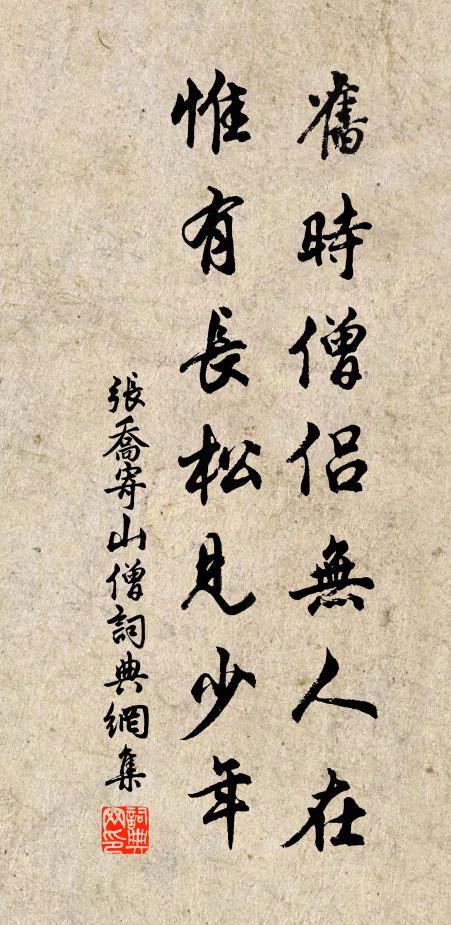 舊時僧侶無人在
惟有長松見少年
張喬寄山僧詞典網集
詞典網印